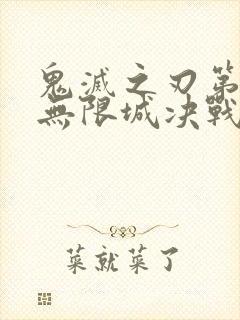 鬼滅之刃第
無限城决戰
菜就菜了